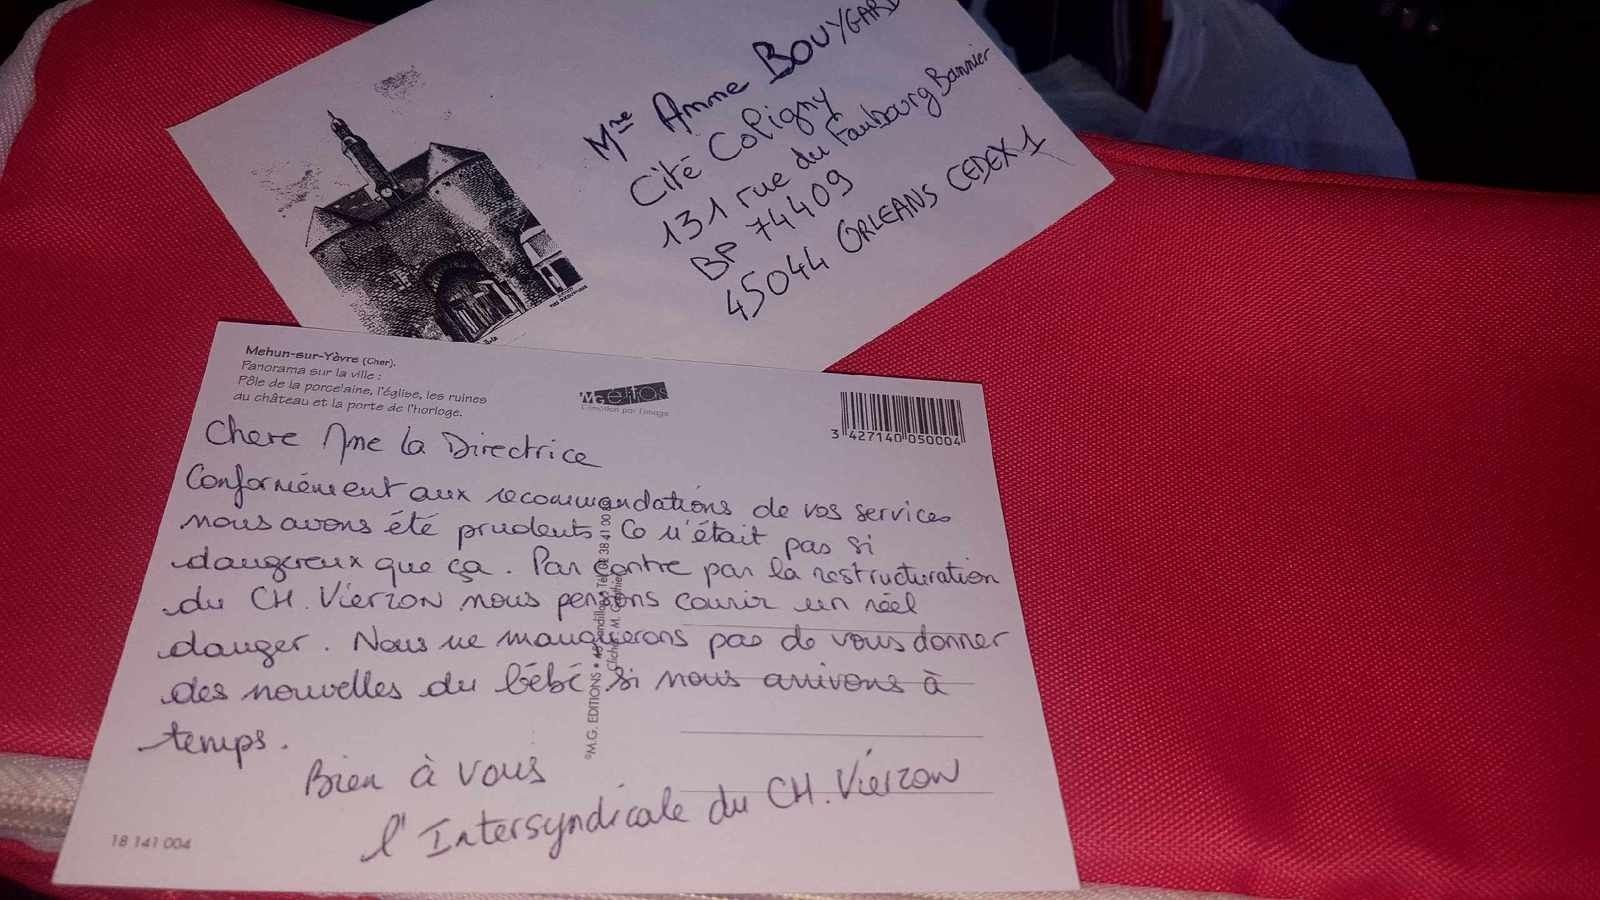 Mme Anne BOUYGARD
Cité Coligny
131 rue du Faubourg Bannier
BP 74409
45044 ORLEANS CEDEX 1
Mehun-sur-Yèvre (Cher).
Panorama sur la ville :
Pôle de la porcelaine, l'église, les ruines
du château et la porte de l'horloge.
MG éditions
L'émotion par l'image
3 427140 050004
Chere Mme la Directrice
Conformément aux recommandations de vos services
nous avons été prudents. Ce n'était pas si
dangereux que ça. Par contre par la restructuration
du CH. Vierzon nous pensons courir un réel
danger. Nous ne manquerons pas de vous donner
des nouvelles du bébé si nous arrivons à
temps.
Bien à vous
l'Intersyndicale du CH. Vierzon
©M.G. EDITIONS •
18 141 004